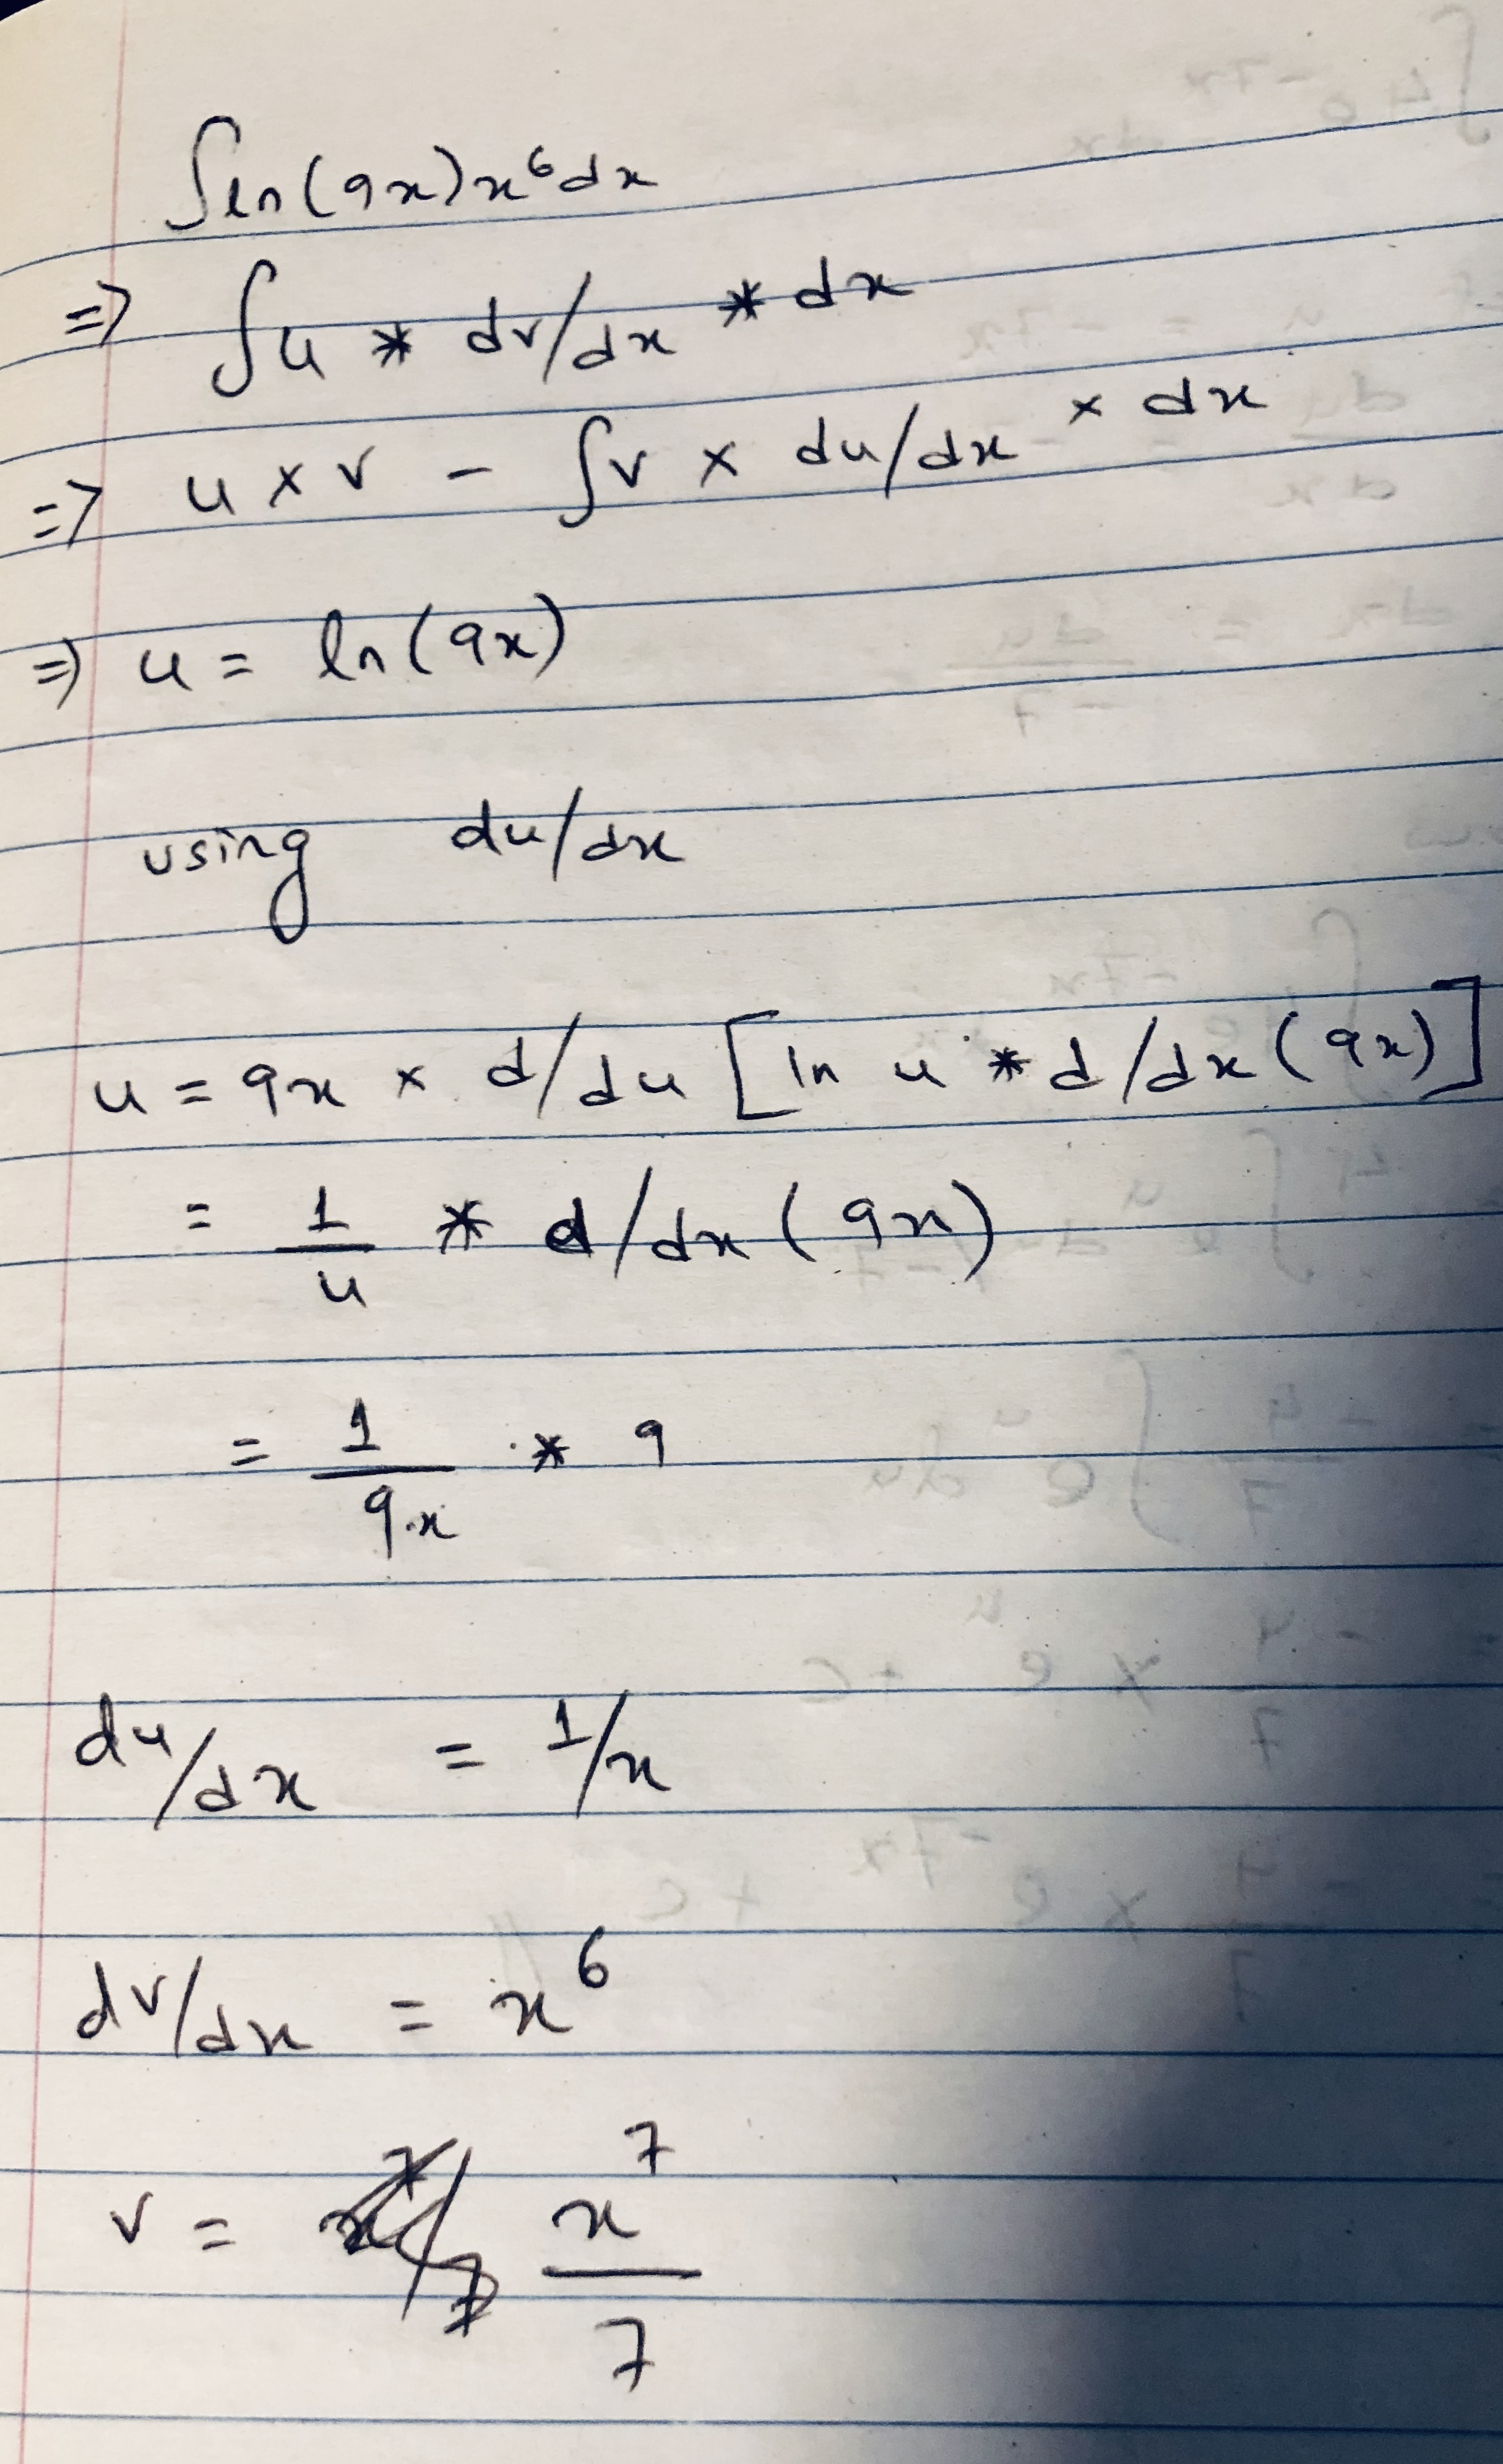 ∫ln(9x)x⁶dx
=> ∫u * dv/dx * dx
=> u × v - ∫v × du/dx × dx
=> u = ln(9x)
using du/dx
u = 9x × d/du [ln u * d/dx(9x)]
= 1/u * d/dx(9x)
= 1/9x * 9
du/dx = 1/x
dv/dx = x⁶
v = x⁷/7